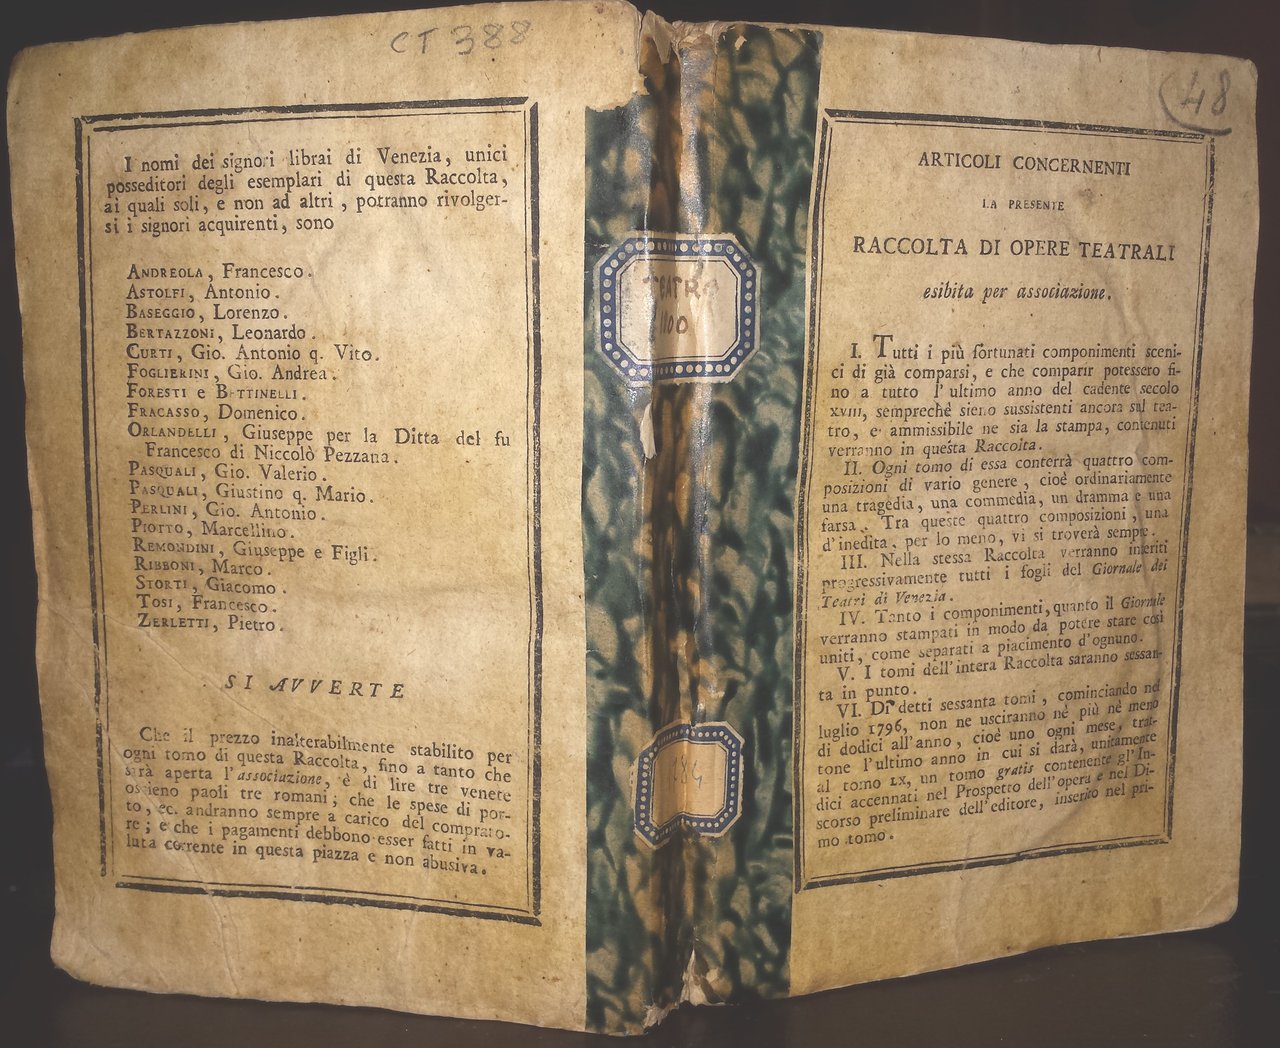 CT 388
I nomi dei signori librai di Venezia, unici
posseditori degli esemplari di questa Raccolta,
ai quali soli, e non ad altri, potranno rivolger-
si i signori acquirenti, sono
ANDREOLA, Francesco.
ASTOLFI, Antonio.
BASEGGIO, Lorenzo.
BERTAZZONI, Leonardo.
CURTI, Gio. Antonio q. Vito.
FOGLIERINI, Gio. Andrea.
FORESTI e BETTINELLI.
FRACASSO, Domenico.
ORLANDELLI, Giuseppe per la Ditta del fu
Francesco di Niccolò Pezzana.
PASQUALI, Gio. Valerio.
PASQUALI, Giustino q. Mario.
PERLINI, Gio. Antonio.
PIOTTO, Marcellino.
REMONDINI, Giuseppe e Figli.
RIBBONI, Marco.
STORTI, Giacomo.
TOSI, Francesco.
ZERLETTI, Pietro.
SI AVVERTE
Che il prezzo inalterabilmente stabilito per
ogni tomo di questa Raccolta, fino a tanto che
sarà aperta l'associazione, è di lire tre venete
ossieno paoli tre romani; che le spese di por-
to, ec. andranno sempre a carico del comprato-
re; e che i pagamenti debbono esser fatti in va-
luta corrente in questa piazza e non abusiva.
TEATRO
184
48
ARTICOLI CONCERNENTI
LA PRESENTE
RACCOLTA DI OPERE TEATRALI
esibita per associazione.
I. Tutti i più fortunati componimenti sceni-
ci di già comparsi, e che comparir potessero fi-
no a tutto l'ultimo anno del cadente secolo
XVIII, sempreché sieno sussistenti ancora sul tea-
tro, e ammissibile ne sia la stampa, contenuti
verranno in questa Raccolta.
II. Ogni tomo di essa conterrà quattro com-
posizioni di vario genere, cioè ordinariamente
una tragedia, una commedia, un dramma e una
farsa. Tra queste quattro composizioni, una
d'inedita, per lo meno, vi si troverà sempre.
III. Nella stessa Raccolta verranno inseriti
progressivamente tutti i fogli del Giornale dei
Teatri di Venezia.
IV. Tanto i componimenti, quanto il Giornale
verranno stampati in modo da potere stare così
uniti, come separati a piacimento d'ognuno.
V. I tomi dell'intera Raccolta saranno sessan-
ta in punto.
VI. Di detti sessanta tomi, cominciando nel
luglio 1796, non ne usciranno nè più nè meno
di dodici all'anno, cioè uno ogni mese, trat-
tone l'ultimo anno in cui si darà, unitamente
al tomo LX, un tomo gratis contenente gl'In-
dici accennati nel Prospetto dell'opera e nel Di-
scorso preliminare dell'editore, inserito nel pri-
mo tomo.